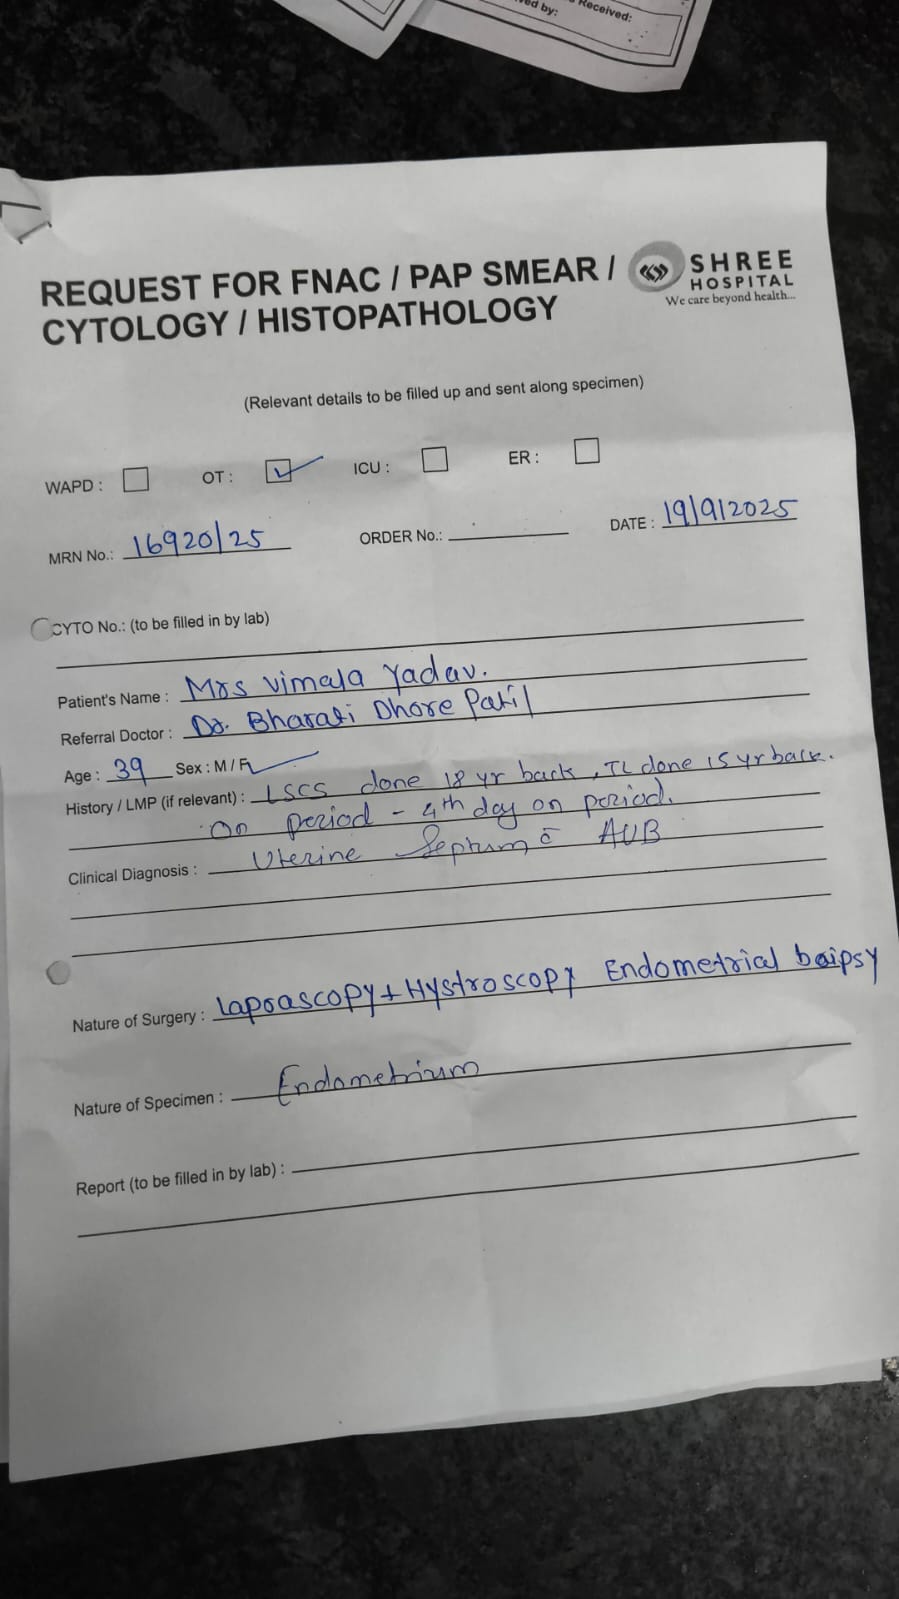 ved by:
Received:
REQUEST FOR FNAC / PAP SMEAR /
CYTOLOGY / HISTOPATHOLOGY
SHREE
HOSPITAL
We care beyond health...
(Relevant details to be filled up and sent along specimen)
WAPD : OT : ICU : ER :
MRN No.: 16920/25 ORDER No.: DATE : 19/9/2025
CYTO No.: (to be filled in by lab)
Patient's Name : Mrs Vimala Yadav.
Referral Doctor : Dr. Bharati Dhore Patil
Age : 39 Sex : M / F
History / LMP (if relevant) : LSCS done 18 yr back, TL done 15 yr back.
On period - 4th day on period.
Clinical Diagnosis : Uterine Septum c̄ AUB
Nature of Surgery : Laproascopy + Hystroscopy Endometrial boipsy
Nature of Specimen : Endometrium
Report (to be filled in by lab) :